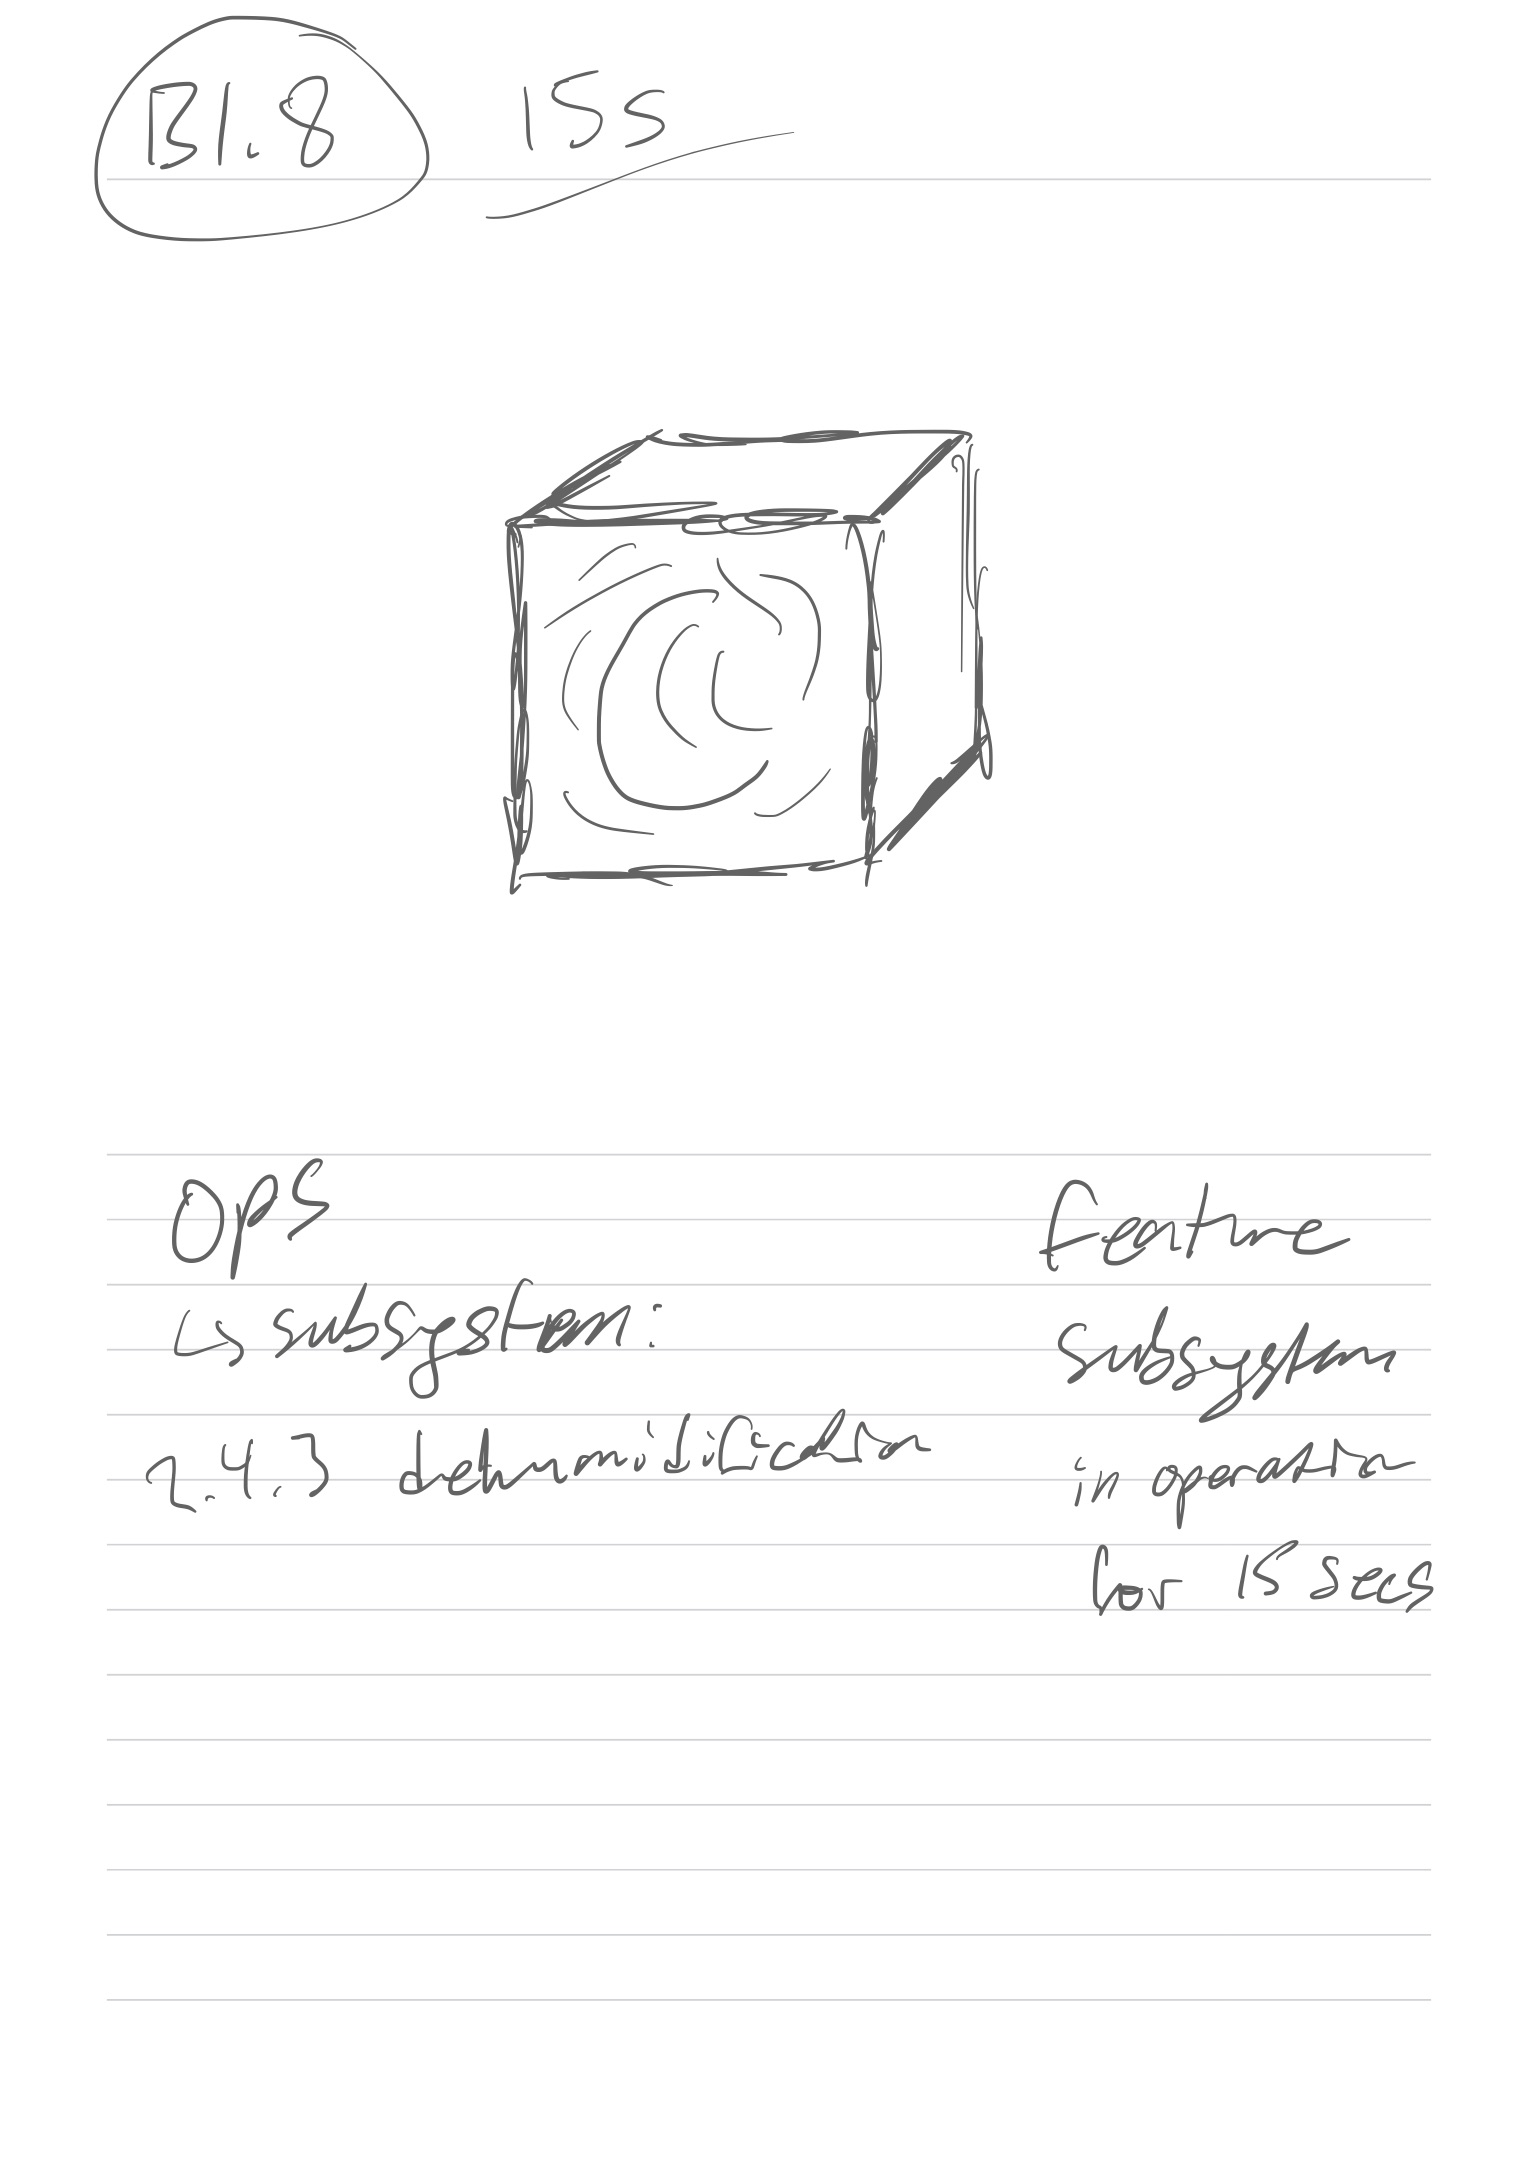 B1.8 15s
OPS
↳ subsystem:
2.4.3 dehumidification
Feature
subsystem
in operation
for 15 secs